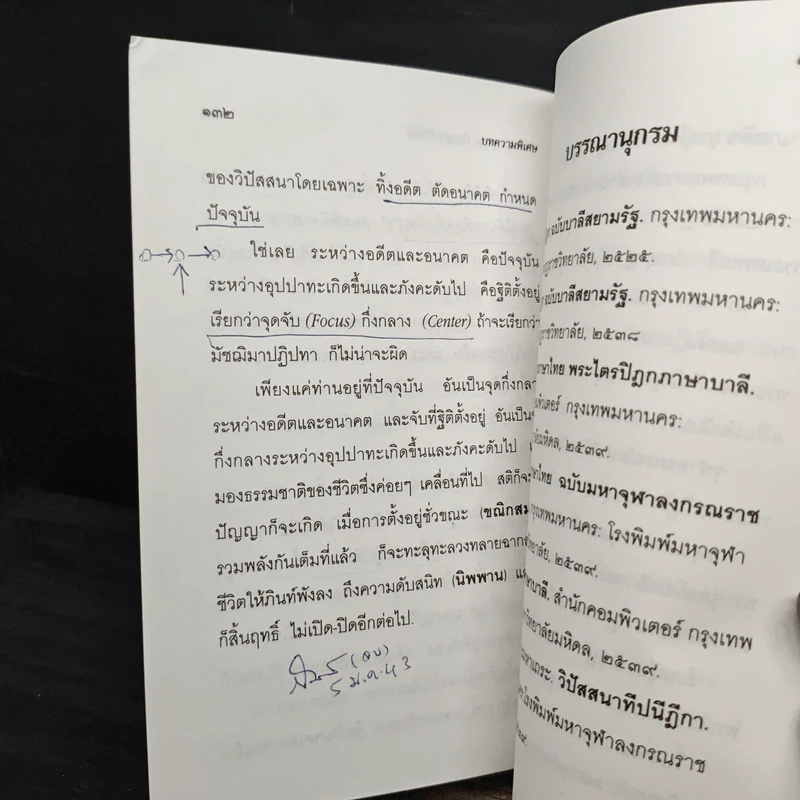 ๑๓๒
บทความพิเศษ
ของวิปัสสนาโดยเฉพาะ ทิ้งอดีต ตัดอนาคต กำหนด
ปัจจุบัน
ใช่เลย ระหว่างอดีตและอนาคต คือปัจจุบัน
ระหว่างอุปปาทะเกิดขึ้นและภังคะดับไป คือฐิติตั้งอยู่
เรียกว่าจุดจับ (Focus) กึ่งกลาง (Center) ถ้าจะเรียกว่า
มัชฌิมาปฏิปทา ก็ไม่น่าจะผิด
เพียงแค่ท่านอยู่ที่ปัจจุบัน อันเป็นจุดกึ่งกลา
ระหว่างอดีตและอนาคต และจับที่ฐิติตั้งอยู่ อันเป็น
กึ่งกลางระหว่างอุปปาทะเกิดขึ้นและภังคะดับไป
มองธรรมชาติของชีวิตซึ่งค่อยๆ เคลื่อนที่ไป สติก็จะ
ปัญญาก็จะเกิด เมื่อการตั้งอยู่ชั่วขณะ (ขณิกสม
รวมพลังกันเต็มที่แล้ว ก็จะทะลุทะลวงทลายฉาก
ชีวิตให้ภินท์พังลง ถึงความดับสนิท (นิพพาน) แ
ก็สิ้นฤทธิ์ ไม่เปิด-ปิดอีกต่อไป.
(จบ)
5 ม.ค. 43
บรรณานุกรม
ฉบับบาลีสยามรัฐ. กรุงเทพมหานคร:
ราชวิทยาลัย, ๒๕๒๕.
ฉบับบาลีสยามรัฐ. กรุงเทพมหานคร:
ราชวิทยาลัย, ๒๕๓๘
ภาษาไทย พระไตรปิฎกภาษาบาลี.
คอมพิวเตอร์ กรุงเทพมหานคร:
มหิดล, ๒๕๓๙.
ภาษาไทย ฉบับมหาจุฬาลงกรณราช
กรุงเทพมหานคร: โรงพิมพ์มหาจุฬา
ลัย, ๒๕๓๙.
บาลี. สำนักคอมพิวเตอร์ กรุงเทพ
วิทยาลัยมหิดล, ๒๕๓๙.
มหาเถระ. วิปัสสนาทีปนีฎีกา.
โรงพิมพ์มหาจุฬาลงกรณราช